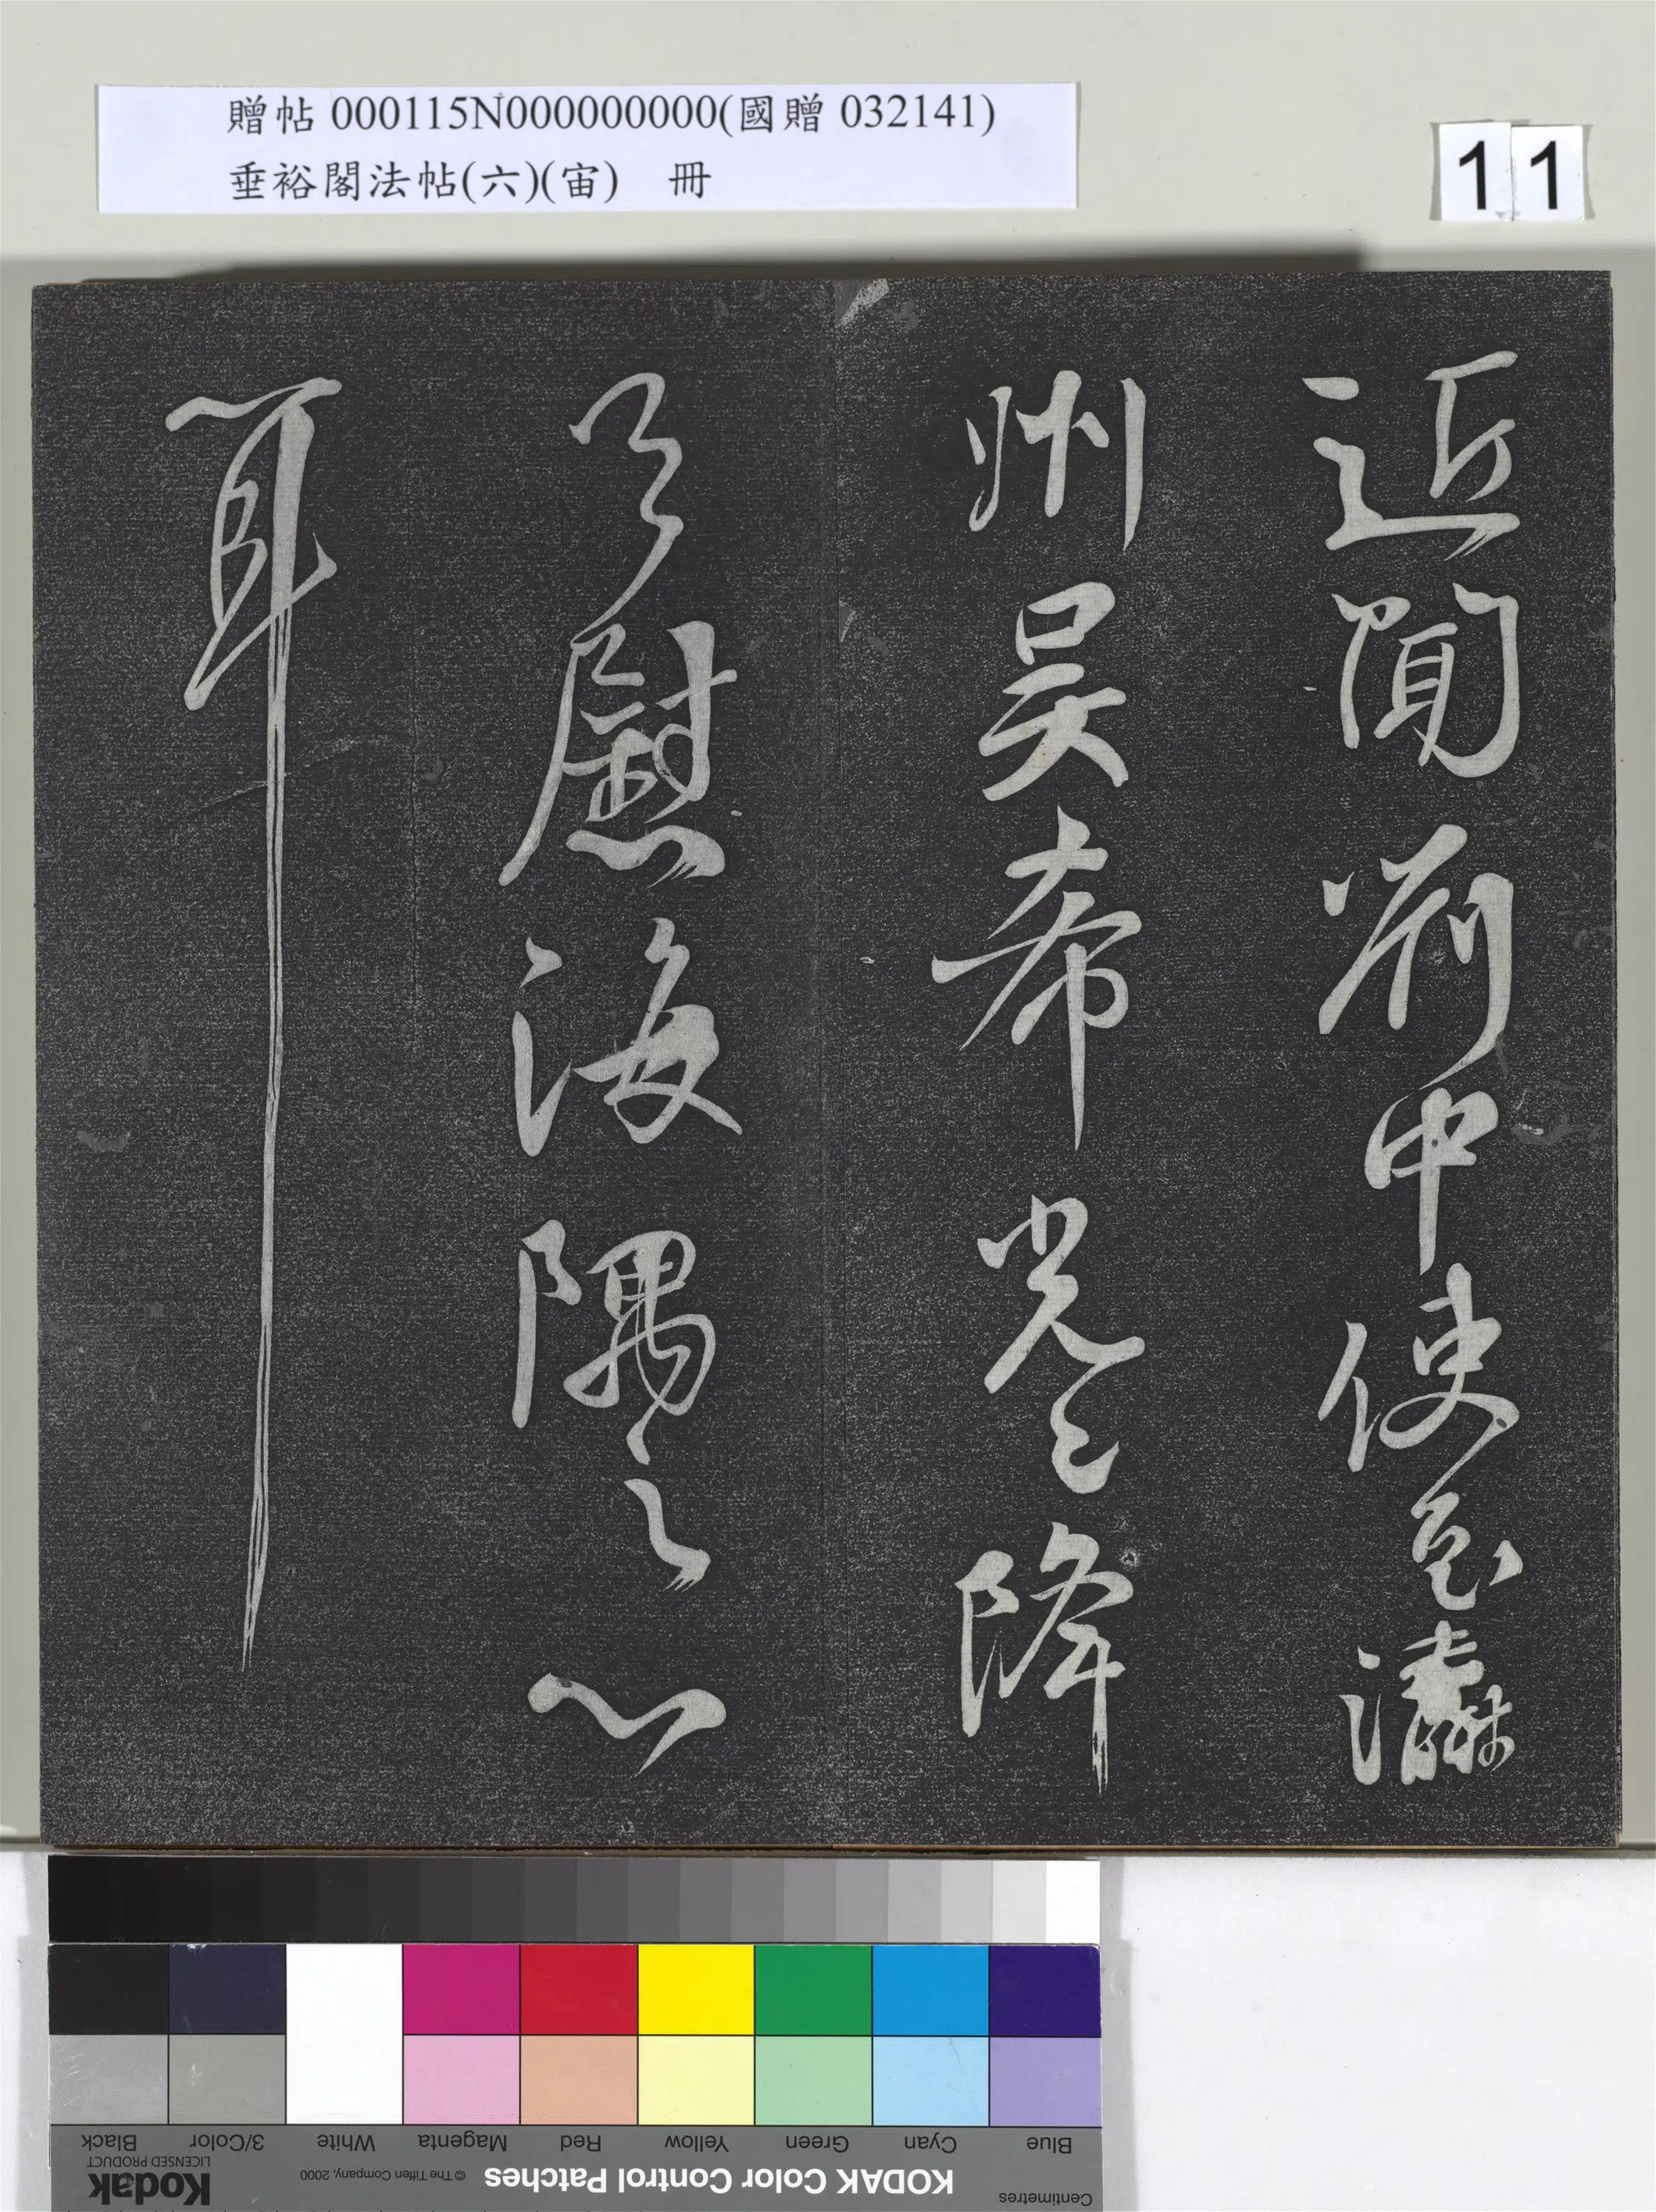 贈帖 000115N000000000(國贈 032141)
垂裕閣法帖(六)(宙) 冊
11
近聞劉中使至瀛
州吳希光已降
足慰海隅之心
耳
Centimetres
Blue Cyan Green Yellow Red Magenta White 3/Color Black
KODAK Color Control Patches © The Tiffen Company, 2000 Kodak
LICENSED PRODUCT